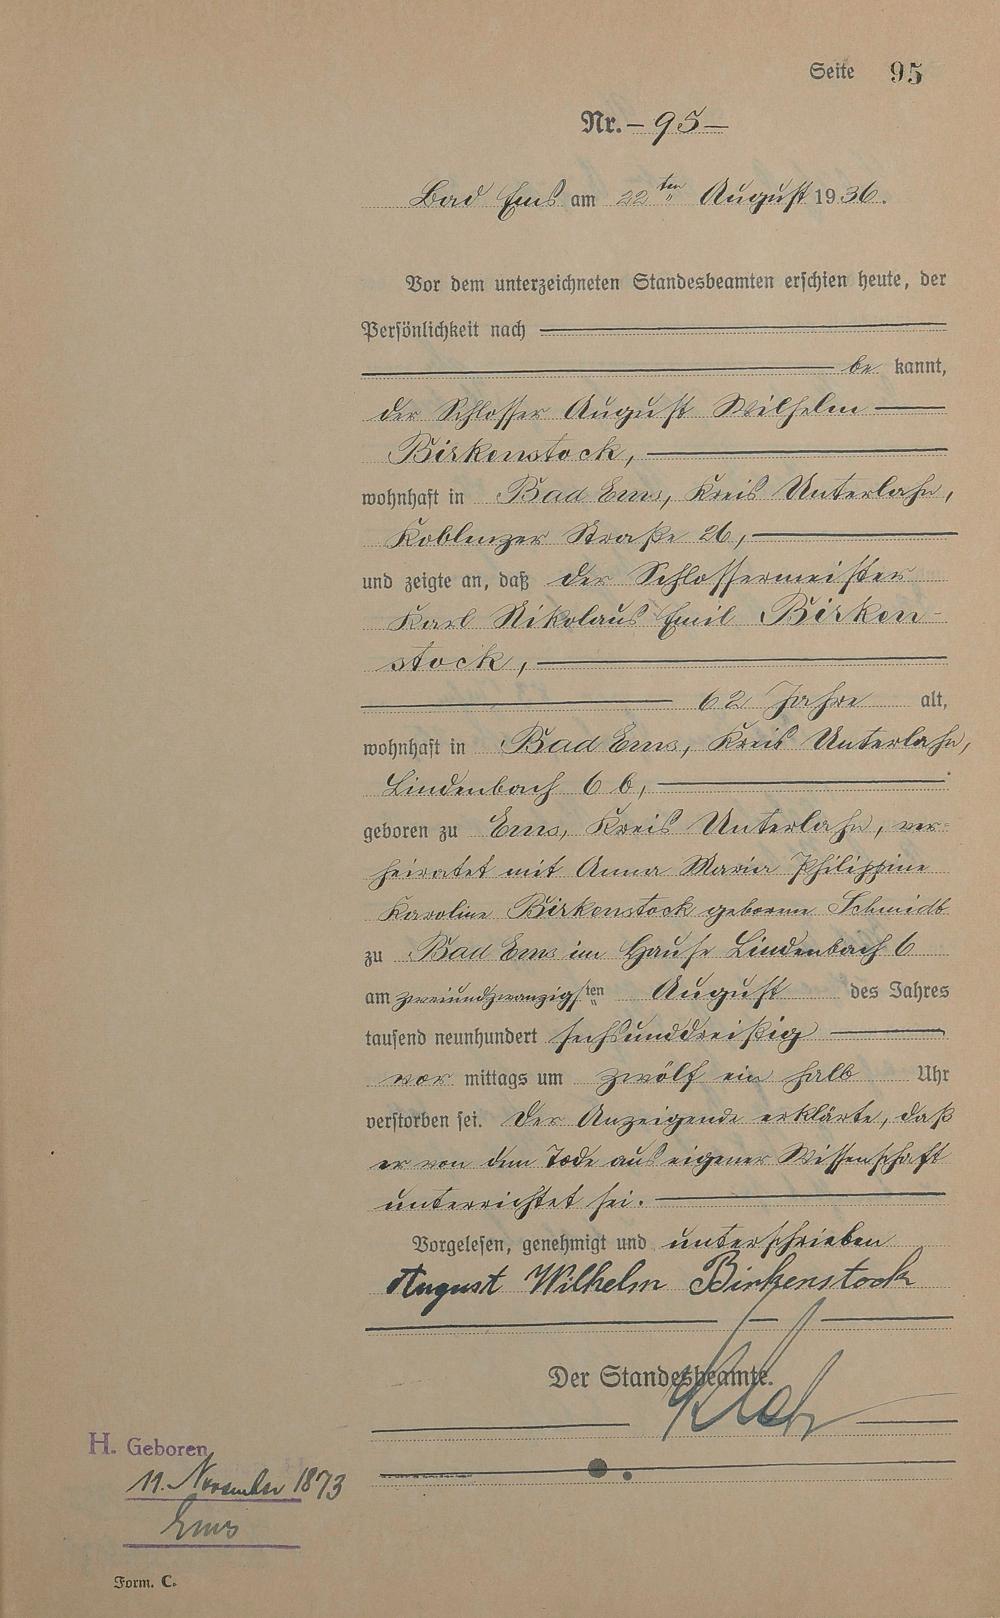 Seite 95
Nr. – 95 –
Bad Ems am 22ten August 1936.
Vor dem unterzeichneten Standesbeamten erschien heute, der
Persönlichkeit nach
be kannt,
der Schlosser August Wilhelm
Birkenstock,
wohnhaft in Bad Ems, Kreis Unterlahn,
Koblenzer Straße 26,
und zeigte an, daß der Schlossermeister
Karl Nikolaus Emil Birken-
stock,
62 Jahre alt,
wohnhaft in Bad Ems, Kreis Unterlahn,
Lindenbach 6 b,
geboren zu Ems, Kreis Unterlahn, ver-
heiratet mit Anna Maria Philippine
Karoline Birkenstock geborene Schmidt
zu Bad Ems im Hause Lindenbach 6
am zweiundzwanzigsten August des Jahres
tausend neunhundert sechsunddreißig
vor mittags um zwölf ein halb Uhr
verstorben sei. Der Anzeigende erklärte, daß
er von dem Tode aus eigener Wissenschaft
unterrichtet sei.
Vorgelesen, genehmigt und unterschrieben
August Wilhelm Birkenstock
Der Standesbeamte.
H. Geboren
11. November 1873
Ems
Form. C.